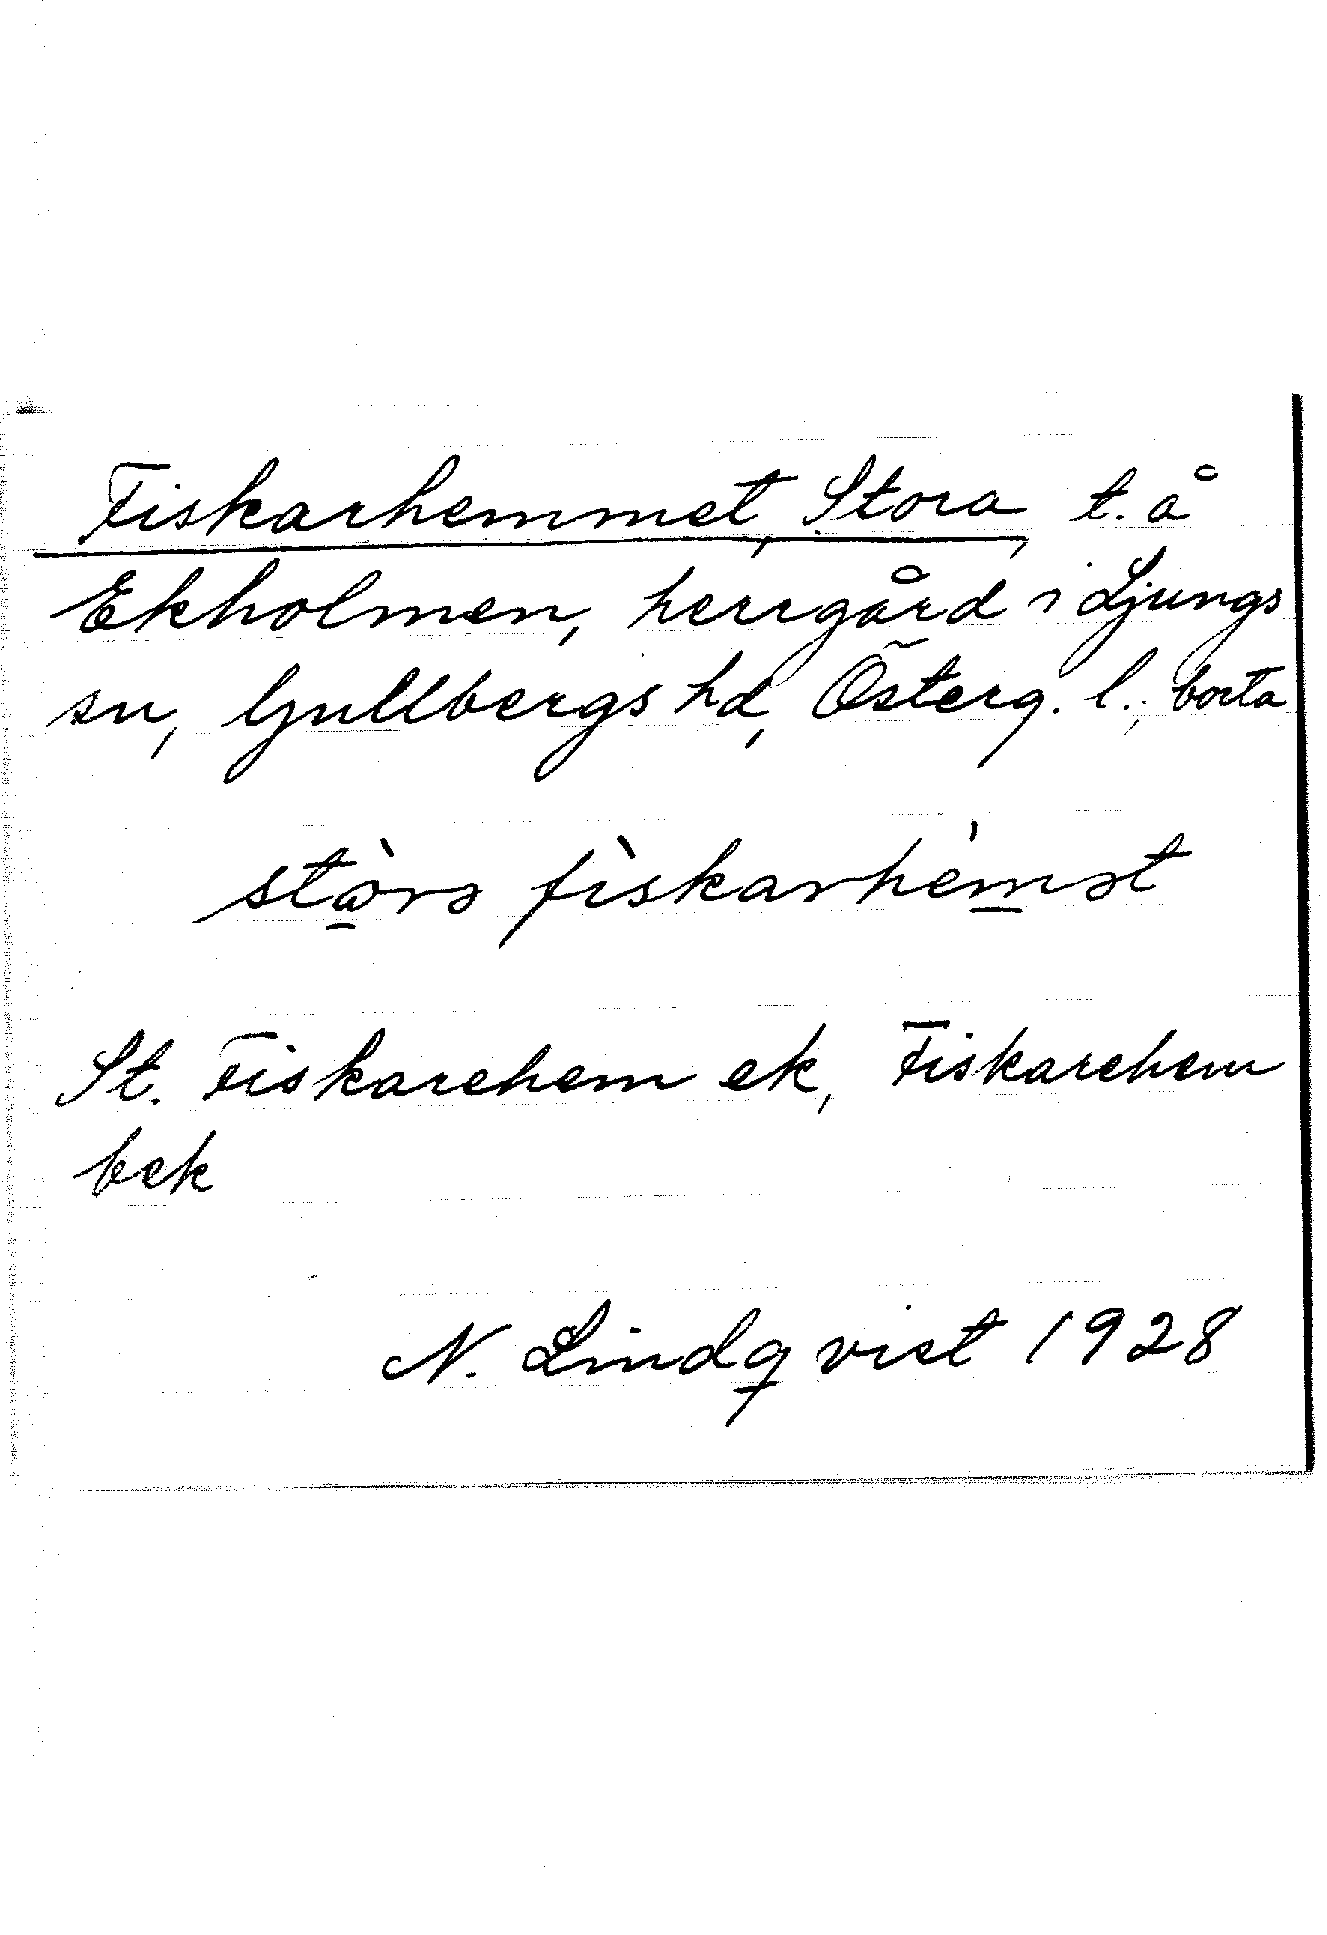 Fiskarhemmet, Stora, t. å
Ekholmen, herrgård i Ljungs
sn, Gullbergs hd, Österg. l., borta
stòrə fìskarhèmət
St. Fiskarehem ek, Fiskarehem
bek
N. Lindqvist 1928